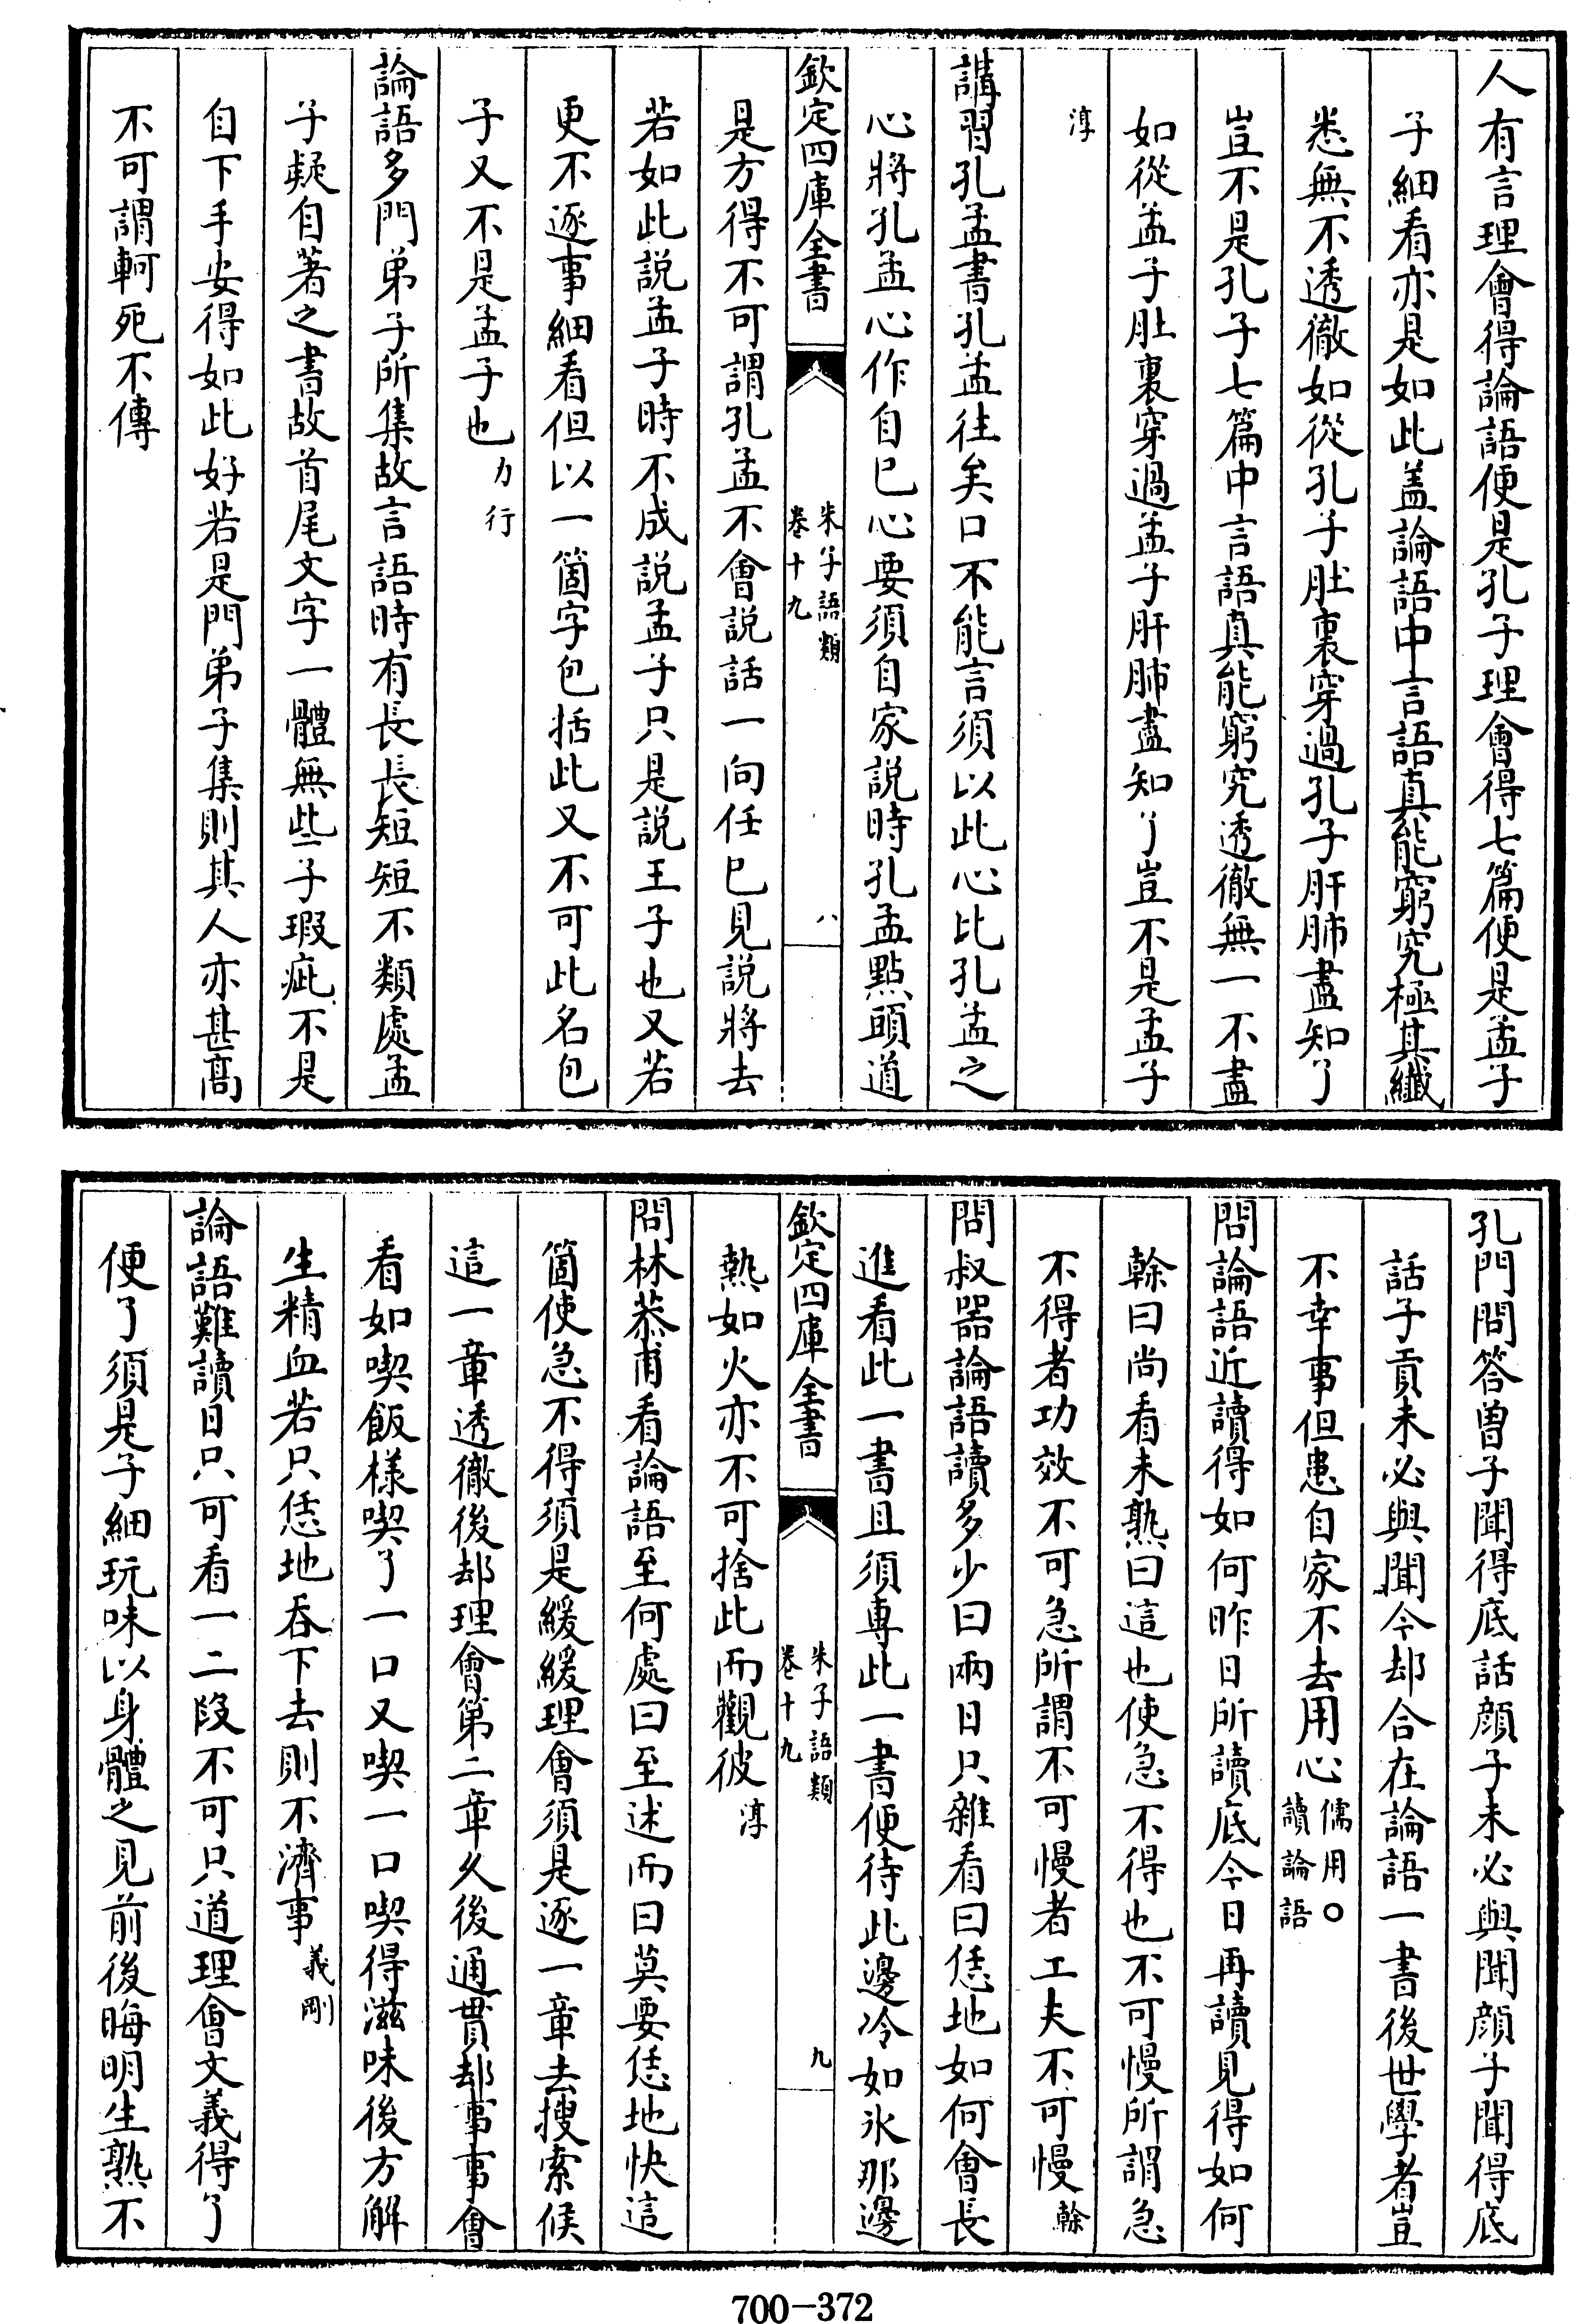 人有言理會得論語便是孔子理會得七篇便是孟子
子細看亦是如此盖論語中言語真能窮究極其纖
悉無不透徹如從孔子肚裏穿過孔子肝肺盡知了
豈不是孔子七篇中言語真能窮究透徹無一不盡
如從孟子肚裏穿過孟子肝肺盡知了豈不是孟子
淳
講習孔孟書孔孟往矣口不能言須以此心比孔孟之
心將孔孟心作自已心要須自家説時孔孟點頭道
欽定四庫全書
朱子語類
卷十九
八
是方得不可謂孔孟不會説話一向任已見説將去
若如此説孟子時不成説孟子只是説王子也又若
更不逐事細看但以一箇字包括此又不可此名包
子又不是孟子也力行
論語多門弟子所集故言語時有長長短短不類處孟
子疑自著之書故首尾文字一體無些子瑕疵不是
自下手安得如此好若是門弟子集則其人亦甚髙
不可謂軻死不傳
孔門問答曽子聞得底話顔子未必與聞顔子聞得底
話子貢未必與聞今却合在論語一書後世學者豈
不幸事但患自家不去用心儒用○
讀論語
問論語近讀得如何昨日所讀底今日再讀見得如何
榦曰尚看未熟曰這也使急不得也不可慢所謂急
不得者功效不可急所謂不可慢者工夫不可慢榦
問叔器論語讀多少曰兩日只雜看曰恁地如何會長
進看此一書且須専此一書便待此邊冷如氷那邊
欽定四庫全書
朱子語類
卷十九
九
熱如火亦不可捨此而觀彼淳
問林恭甫看論語至何處曰至述而曰莫要恁地快這
箇使急不得須是緩緩理會須是逐一章去搜索候
這一章透徹後却理會第二章久後通貫却事事會
看如喫飯様喫了一口又喫一口喫得滋味後方解
生精血若只恁地吞下去則不濟事義剛
論語難讀日只可看一二段不可只道理會文義得了
便了須是子細玩味以身體之見前後晦明生熟不
700-372